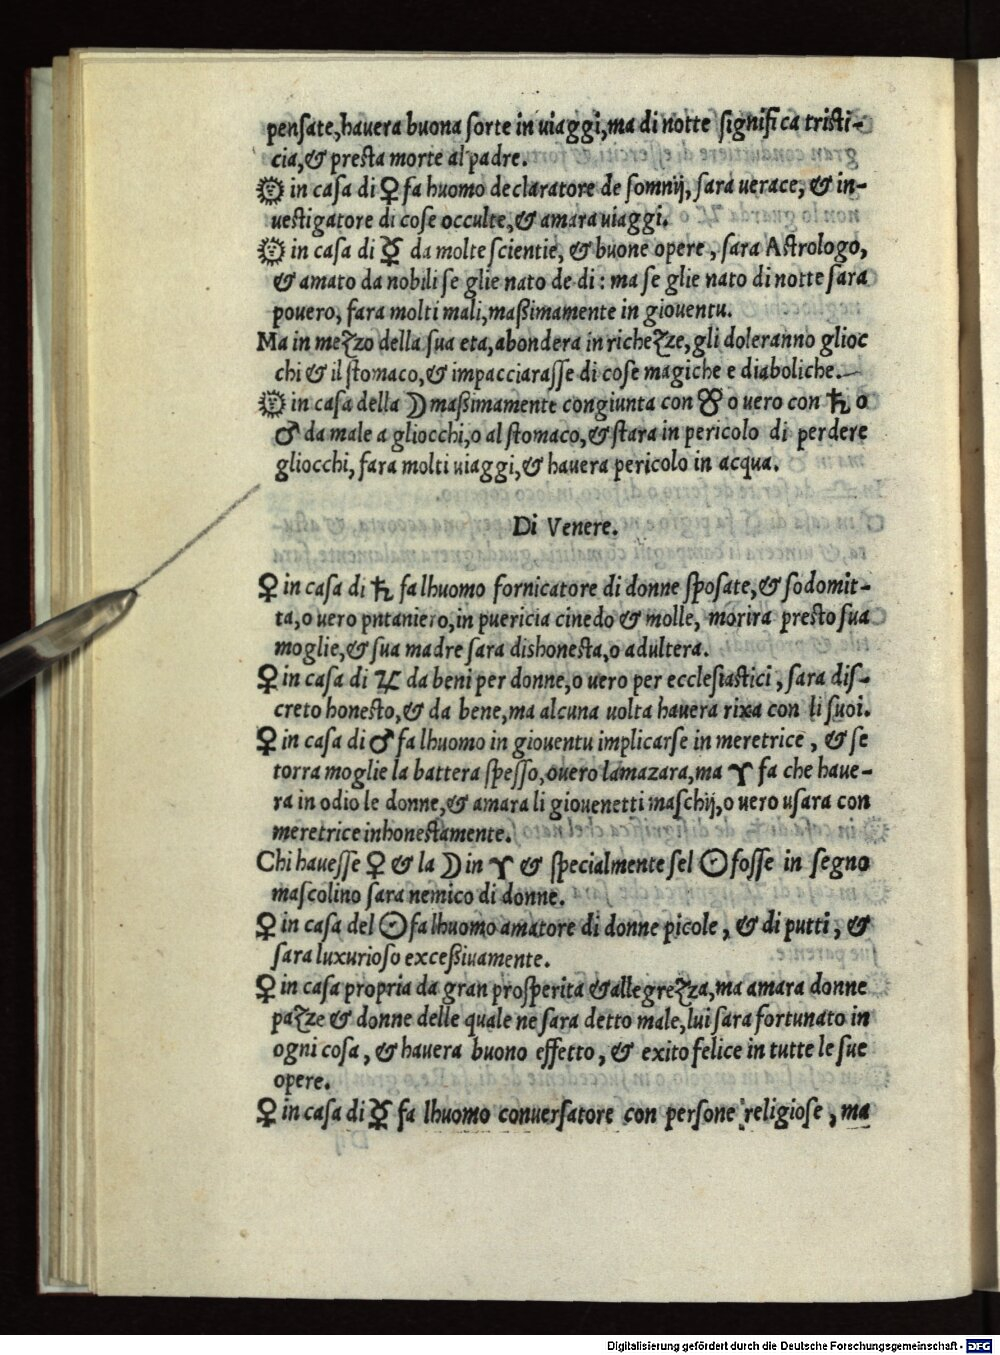 penſate,hauera buona ſorte in uiaggi,ma di notte ſignifica triſti-
cia,& preſta morte al padre.
☼ in caſa di ♀ fa huomo declaratore de ſomnij, ſara uerace, & in-
ueſtigatore di coſe occulte,& amara uiaggi.
☼ in caſa di ☿ da molte ſcientie, & buone opere, ſara Aſtrologo,
& amato da nobili ſe glie nato de di: ma ſe glie nato di notte ſara
pouero, fara molti mali,maßimamente in giouentu.
Ma in mezzo della ſua eta,abondera in richezze,gli doleranno glioc
chi & il ſtomaco,& impacciaraſſe di coſe magiche e diaboliche.
☼ in caſa della ☽ maßimamente congiunta con ☋ o uero con ♄ o
♂ da male a gliocchi,o al ſtomaco,& ſtara in pericolo di perdere
gliocchi, fara molti uiaggi,& hauera pericolo in acqua.
Di Venere.
♀ in caſa di ♄ fa lhuomo fornicatore di donne ſpoſate,& ſodomit-
ta,o uero pntaniero,in puericia cinedo & molle, morira preſto ſua
moglie,& ſua madre ſara dishoneſta,o adultera.
♀ in caſa di ♃ da beni per donne,o uero per eccleſiaſtici, ſara diſ-
creto honeſto,& da bene,ma alcuna uolta hauera rixa con li ſuoi.
♀ in caſa di ♂ fa lhuomo in giouentu implicarſe in meretrice, & ſe
torra moglie la battera ſpeſſo,ouero lamazara,ma ♈ fa che haue-
ra in odio le donne,& amara li giouenetti maſchij,o uero uſara con
meretrice inhoneſtamente.
Chi haueſſe ♀ & la ☽ in ♈ & ſpecialmente ſel ☉ foſſe in ſegno
maſcolino ſara nemico di donne.
♀ in caſa del ☉ fa lhuomo amatore di donne picole, & di putti, &
ſara luxurioſo exceßiuamente.
♀ in caſa propria da gran proſperita & allegrezza,ma amara donne
pazze & donne delle quale ne ſara detto male,lui ſara fortunato in
ogni coſa, & hauera buono effetto, & exito felice in tutte le ſue
opere.
♀ in caſa di ☿ fa lhuomo conuerſatore con perſone religioſe, ma
Digitalisierung gefördert durch die Deutsche Forschungsgemeinschaft - DFG